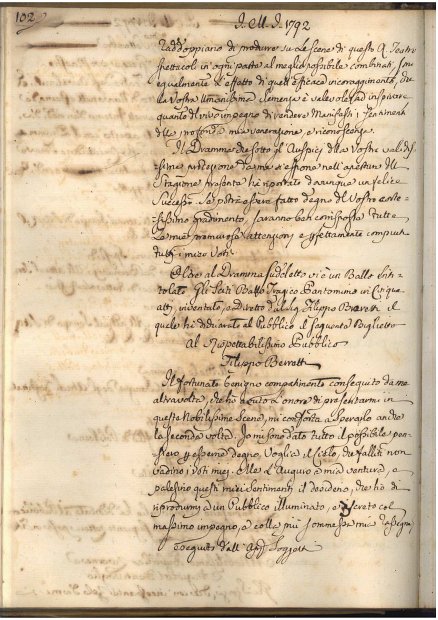 102
1792
di produrre su le scene di questo R. Teatro
spettacoli in ogni parte al meglio possibile combinati, son
egualmente l'effetto di quell'efficace incoraggimento, che
la Vostra Umanissima Clemenza
quanto di vivo impegno di rendere Manifesti i sentimenti
della profonda mia venerazione, e riconoscenza.
Il Dramma che sotto gli Auspicj della Vostra
protezione da me si espone nell'apertura della
Stagione presente un felice
Successo. Se potrò essere fatto degno del Vostro
gradimento, saranno ben compensate tutte
le mie premurose attenzioni e perfettamente compiuti
tutti i miei Voti.
Oltre al Dramma suddetto vi è un Ballo Inti-
tolato Gli Tragico Pantomimo in Cinque
atti inventato, e diretto dal Sig. Filippo Beretti il
quale ha al Pubblico il seguente Biglietto
Al Rispettabilissimo Pubblico
Filippo Berretti
Il fortunato benigno compatimento conseguito da me
altra volta, che ho avuto l'onore di presentarmi in
questa Nobilissima Scena, mi conforta a sperarlo anche
la seconda volta. Io mi sono dato tutto il possibile pen-
siero per esserne degno. Voglia il Cielo, che falliti non
vadino i voti miei. Ella è mia ventura, e
palesino questi miei Sentimenti il desiderio, che ho di
riprodurmi a un Pubblico illuminato, e discreto col
massimo impegno, e colla mia sommessa